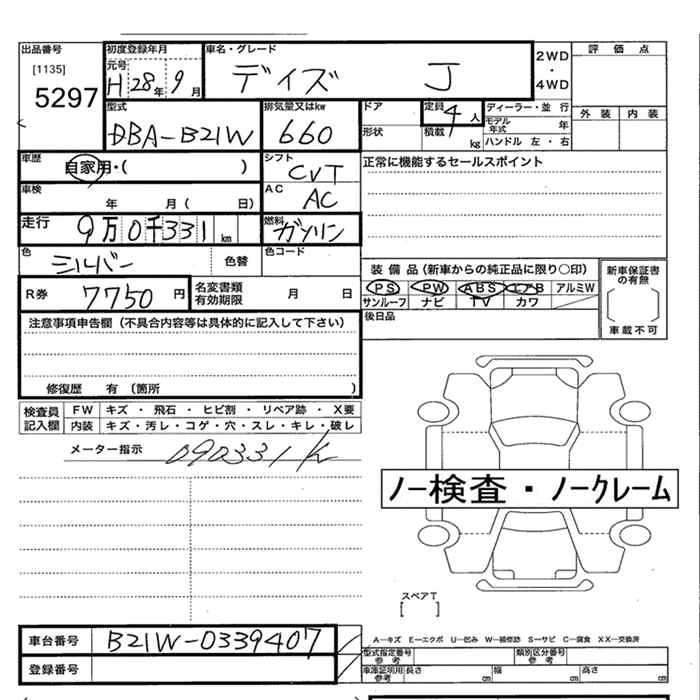 出品番号 初度登録年月 車名・グレード 評価点
[1135] 元号 2WD
5297 H28年9月 デイズ J ・
4WD
型式 排気量又はkw ドア 定員 4人 ディーラー・並行 外装 内装
DBA-B21W 660 形状 積載 kg モデル年式 年
ハンドル 左・右
車歴 自家用・( ) シフト CVT 正常に機能するセールスポイント
車検 年 月( 日) AC AC
走行 9万0千331km 燃料 ガソリン
色 シルバー 色替 色コード
装備品(新車からの純正品に限り○印) 新車保証書の有無
R券 7750円 名変書類有効期限 月 日 PS PW ABS エアB アルミW
サンルーフ ナビ TV カワ 車載不可
後日品
注意事項申告欄(不具合内容等は具体的に記入して下さい)
修復歴 有 (箇所 )
検査員記入欄 FW キズ・飛石・ヒビ割・リペア跡・X要
内装 キズ・汚レ・コゲ・穴・スレ・キレ・破レ
メーター指示 090331K
ノー検査・ノークレーム
スペアT
[ ]
車台番号 B21W-0339407 A―キズ E―エクボ U―凹み W―補修跡 S―サビ C―腐食 XX―交換済
型式指定番号 参考 類別区分番号 参考
登録番号 車庫証明用参考 長さ cm 幅 cm 高さ cm